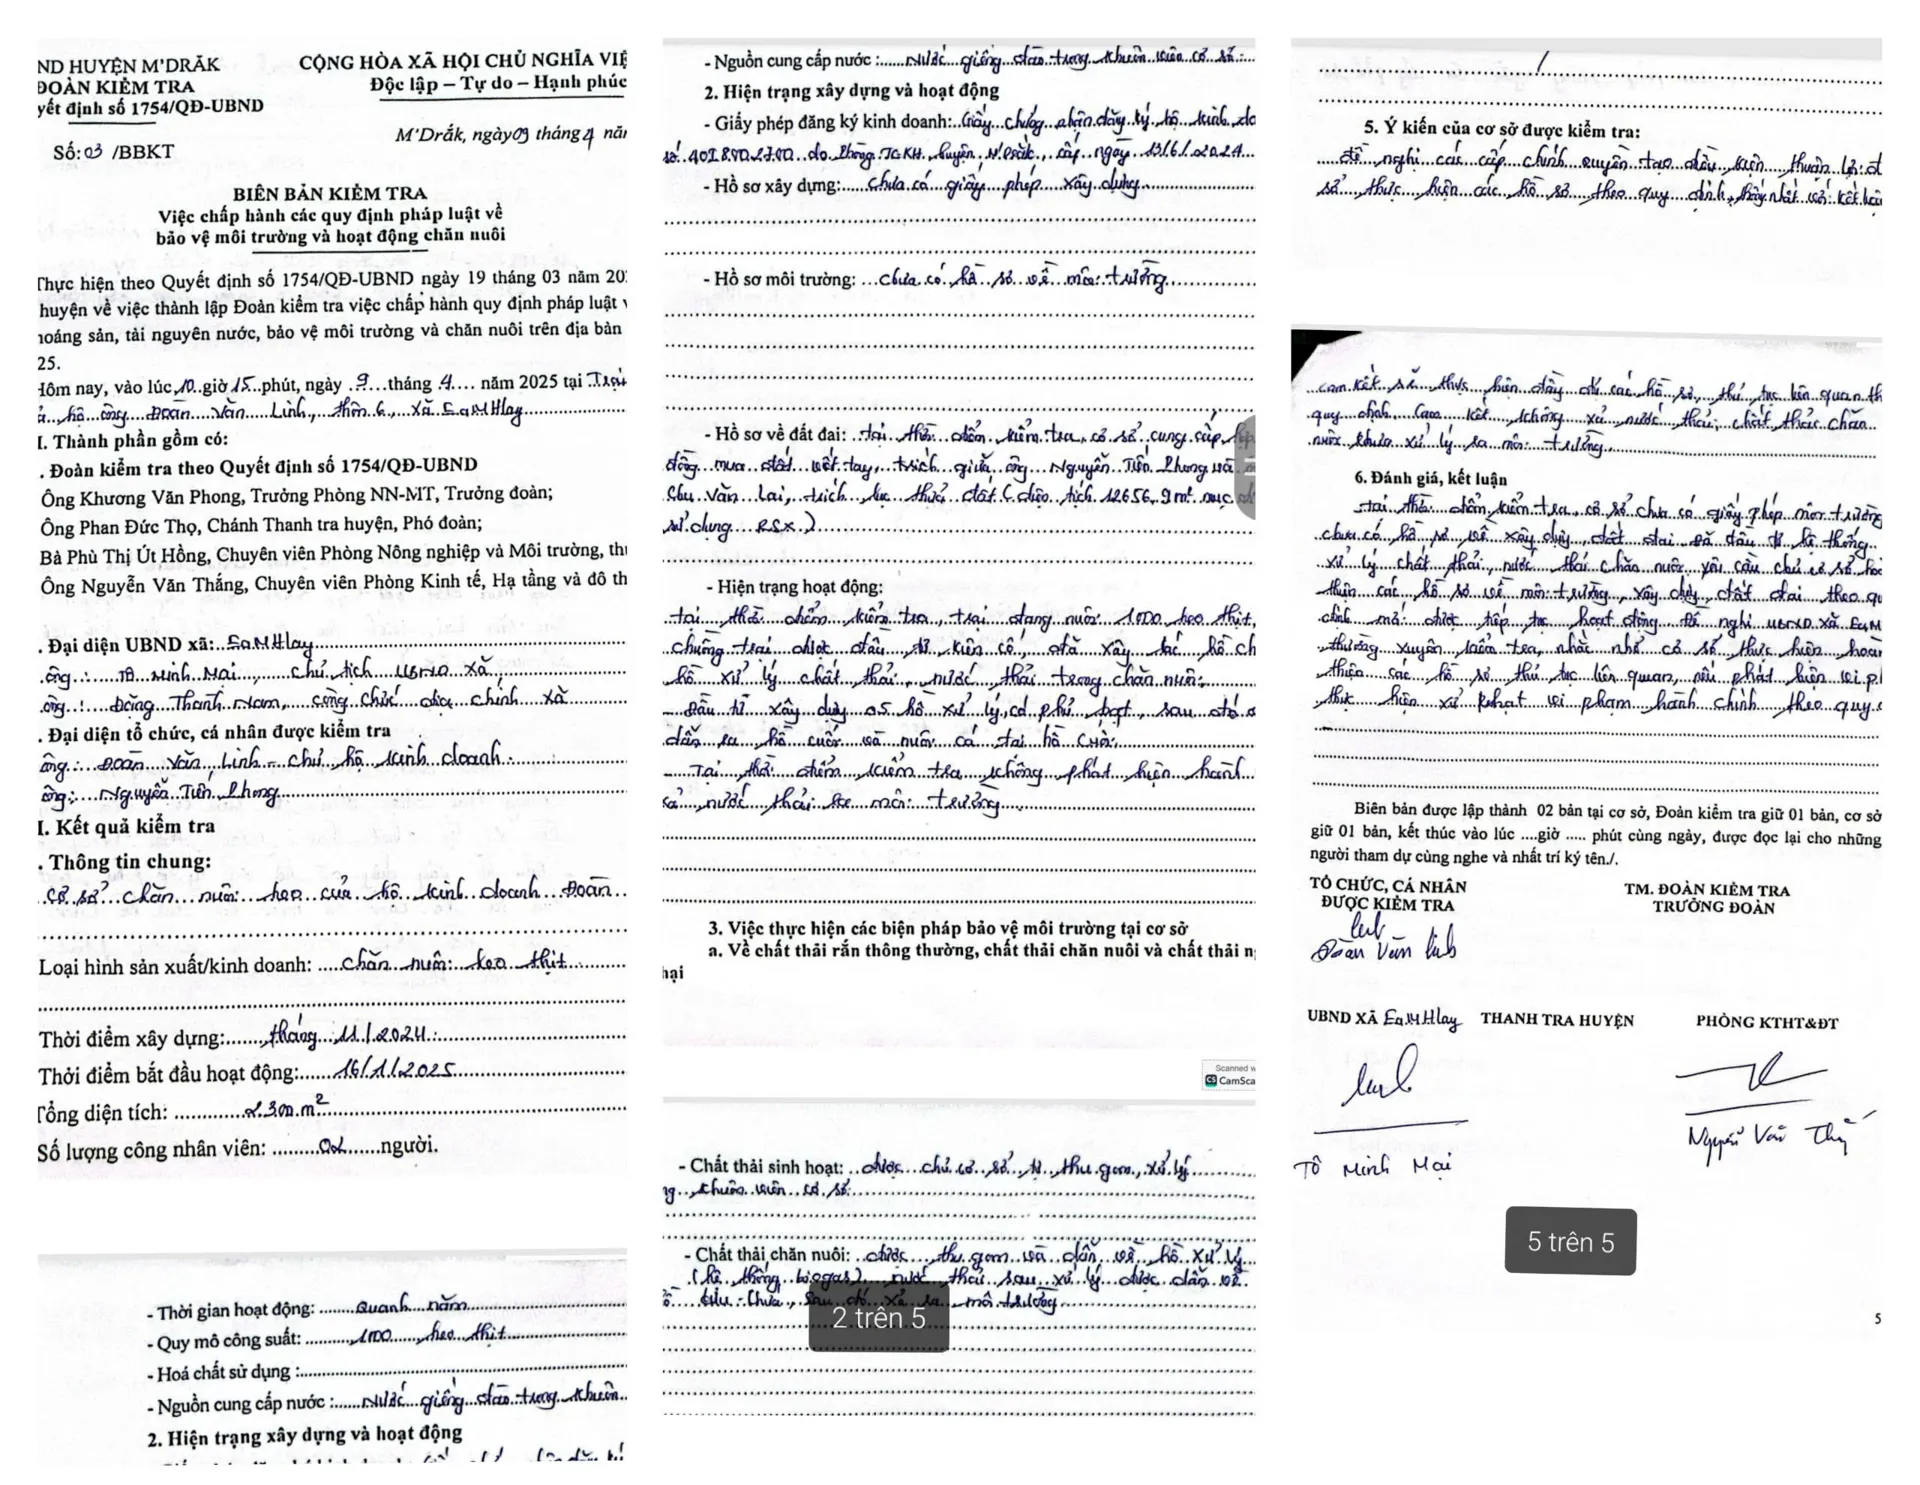 ND HUYỆN M'DRĂK
ĐOÀN KIỂM TRA
yết định số 1754/QĐ-UBND
Số: 03 /BBKT
CỘNG HÒA XÃ HỘI CHỦ NGHĨA VIỆ
Độc lập – Tự do – Hạnh phúc
M'Drắk, ngày 09 tháng 4 năn
BIÊN BẢN KIỂM TRA
Việc chấp hành các quy định pháp luật về
bảo vệ môi trường và hoạt động chăn nuôi
Thực hiện theo Quyết định số 1754/QĐ-UBND ngày 19 tháng 03 năm 20
huyện về việc thành lập Đoàn kiểm tra việc chấp hành quy định pháp luật v
hoáng sản, tài nguyên nước, bảo vệ môi trường và chăn nuôi trên địa bàn
25.
Hôm nay, vào lúc 10 giờ 15 phút, ngày 9 tháng 4 năm 2025 tại Trại
hộ ông Đoàn Văn Linh, thôn 6, xã EaMHlay
I. Thành phần gồm có:
. Đoàn kiểm tra theo Quyết định số 1754/QĐ-UBND
Ông Khương Văn Phong, Trưởng Phòng NN-MT, Trưởng đoàn;
Ông Phan Đức Thọ, Chánh Thanh tra huyện, Phó đoàn;
Bà Phù Thị Út Hồng, Chuyên viên Phòng Nông nghiệp và Môi trường, thư
Ông Nguyễn Văn Thắng, Chuyên viên Phòng Kinh tế, Hạ tầng và đô th
. Đại diện UBND xã: EaMHlay
ông: Tô Minh Mại, chủ tịch UBND xã,
ông: Đặng Thanh Nam, công chức địa chính xã
. Đại diện tổ chức, cá nhân được kiểm tra
ông: Đoàn Văn Linh - chủ hộ kinh doanh.
ông: Nguyễn Tiến Phong
I. Kết quả kiểm tra
. Thông tin chung:
Cơ sở chăn nuôi heo của hộ kinh doanh Đoàn
Loại hình sản xuất/kinh doanh: chăn nuôi heo thịt
Thời điểm xây dựng: tháng 11/2024
Thời điểm bắt đầu hoạt động: 16/1/2025
Tổng diện tích: 2.300 m²
Số lượng công nhân viên: 02 người.
- Thời gian hoạt động: Quanh năm
- Quy mô công suất: 1000 heo thịt
- Hoá chất sử dụng :
- Nguồn cung cấp nước : Nước giếng đào trong khuôn
2. Hiện trạng xây dựng và hoạt động
- Nguồn cung cấp nước : Nước giếng đào trong khuôn viên cơ sở
2. Hiện trạng xây dựng và hoạt động
- Giấy phép đăng ký kinh doanh: Giấy chứng nhận đăng ký hộ kinh do
số 40I8002700 do Phòng TCKH huyện M'Drăk cấp ngày 13/6/2024
- Hồ sơ xây dựng: chưa có giấy phép xây dựng
- Hồ sơ môi trường: chưa có hồ sơ về môi trường
- Hồ sơ về đất đai: tại thời điểm kiểm tra, cơ sở cung cấp hợp
đồng mua đất viết tay, trích giữa ông Nguyễn Tiến Phong và
Chu Văn Lai, trích lục thửa đất (diện tích 12656,9m² mục đ
sử dụng RSX)
- Hiện trạng hoạt động:
tại thời điểm kiểm tra, trại đang nuôi 1000 heo thịt,
chuồng trại được đầu tư kiên cố, đã xây các hồ ch
hồ xử lý chất thải, nước thải trong chăn nuôi
Đầu tư xây dựng 05 hồ xử lý, có phủ bạt, sau đó
dẫn ra hồ cuối và nuôi cá tại hồ chứa
Tại thời điểm kiểm tra không phát hiện hành
xả nước thải ra môi trường
3. Việc thực hiện các biện pháp bảo vệ môi trường tại cơ sở
a. Về chất thải rắn thông thường, chất thải chăn nuôi và chất thải n
hại
Scanned w
CS CamSca
- Chất thải sinh hoạt: được chủ cơ sở tự thu gom, xử lý
ng khuôn viên cơ sở
- Chất thải chăn nuôi: được thu gom và dẫn về hồ xử lý
(hệ thống biogas), nước thải sau xử lý được dẫn về
chứa, sau đó xả ra môi trường
2 trên 5
5. Ý kiến của cơ sở được kiểm tra:
đề nghị các cấp chính quyền tạo điều kiện thuận lợi đ
sở thực hiện các hồ sơ theo quy định
cam kết sẽ thực hiện đầy đủ các hồ sơ, thủ tục liên quan th
quy định. Cam kết không xả nước thải, chất thải chăn
nuôi chưa xử lý ra môi trường
6. Đánh giá, kết luận
tại thời điểm kiểm tra, cơ sở chưa có giấy phép môi trường
chưa có hồ sơ về xây dựng, đất đai Đã đầu tư hệ thống
xử lý chất thải, nước thải chăn nuôi yêu cầu chủ cơ sở ho
thiện các hồ sơ về môi trường, xây dựng, đất đai theo qu
định mới được tiếp tục hoạt động Đề nghị UBND xã EaM
thường xuyên kiểm tra, nhắc nhở cơ sở thực hiện hoàn
thiện các hồ sơ thủ tục liên quan, nếu phát hiện vi p
thực hiện xử phạt vi phạm hành chính theo quy
Biên bản được lập thành 02 bản tại cơ sở, Đoàn kiểm tra giữ 01 bản, cơ sở
giữ 01 bản, kết thúc vào lúc ....giờ ..... phút cùng ngày, được đọc lại cho những
người tham dự cùng nghe và nhất trí ký tên./.
TỔ CHỨC, CÁ NHÂN
ĐƯỢC KIỂM TRA
TM. ĐOÀN KIỂM TRA
TRƯỞNG ĐOÀN
Đoàn Văn Linh
UBND XÃ EaMHlay THANH TRA HUYỆN PHÒNG KTHT&ĐT
Tô Minh Mại
Nguyễn Văn Thắ
5 trên 5
5